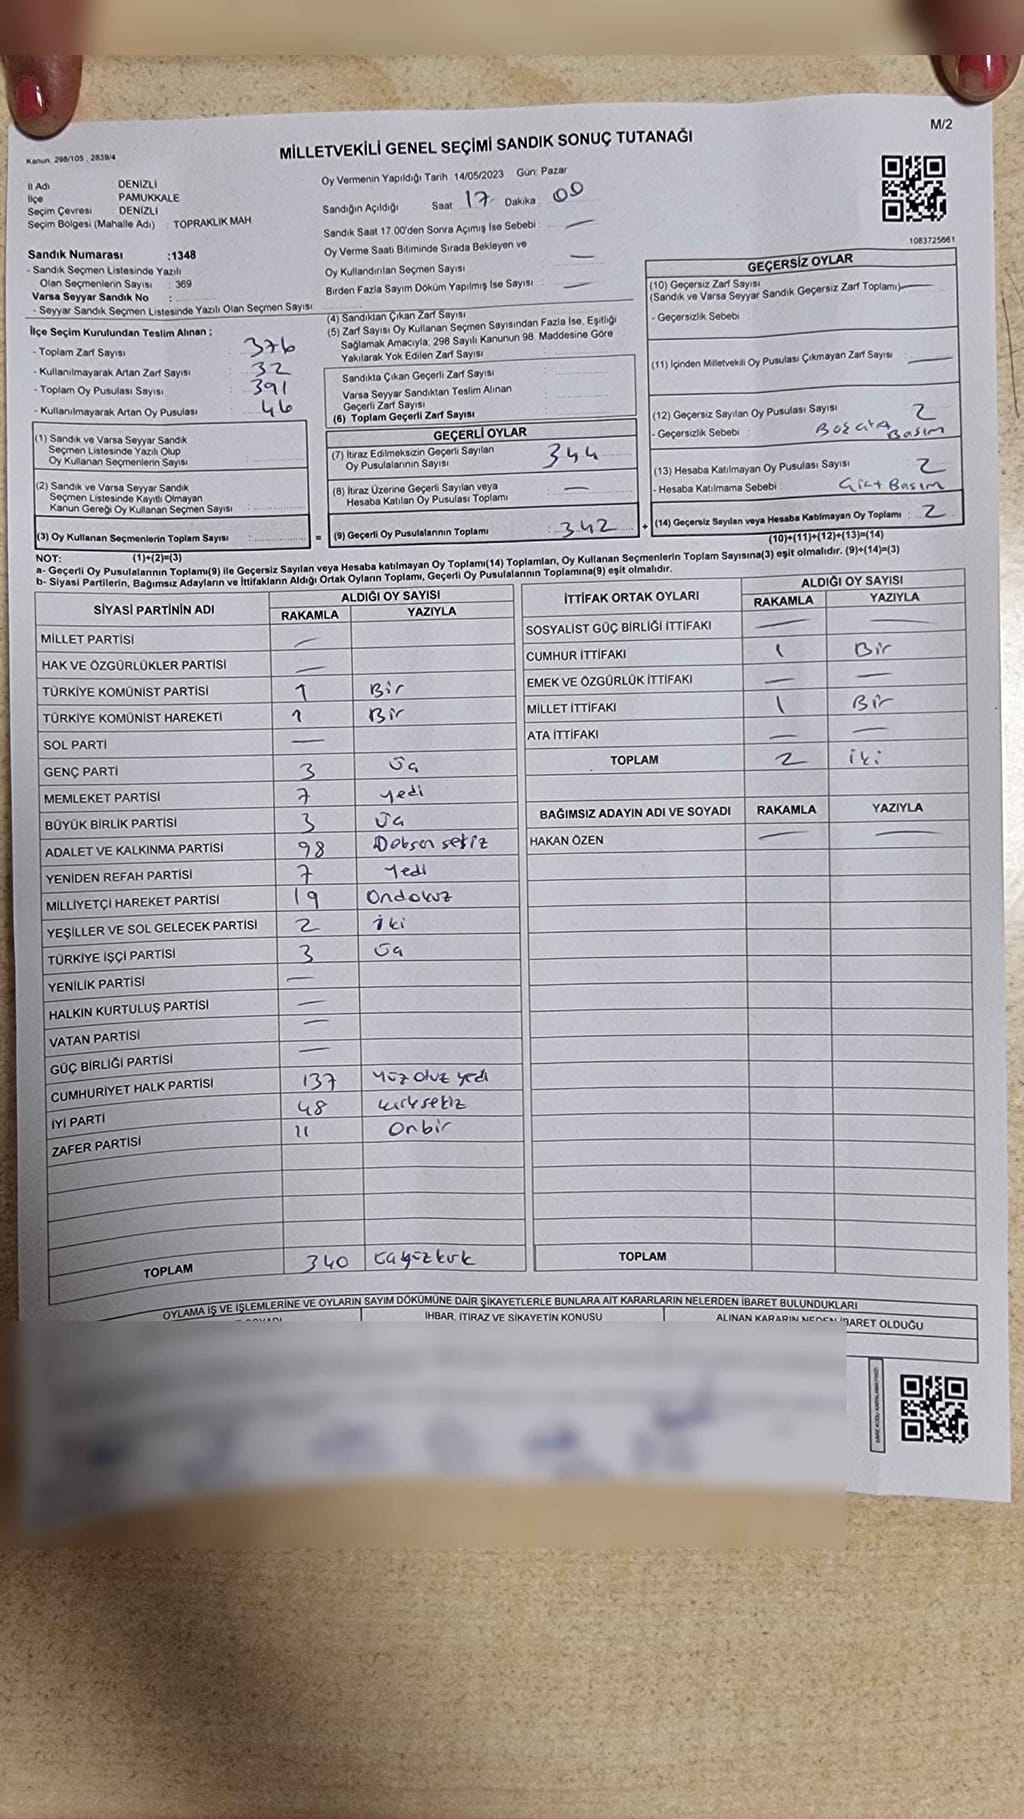 M/2
Kanun, 298/105 , 2839/4
MİLLETVEKİLİ GENEL SEÇİMİ SANDIK SONUÇ TUTANAĞI
İl Adı : DENİZLİ
İlçe : PAMUKKALE
Seçim Çevresi : DENİZLİ
Seçim Bölgesi (Mahalle Adı) : TOPRAKLIK MAH.
Sandık Numarası :1348
- Sandık Seçmen Listesinde Yazılı
Olan Seçmenlerin Sayısı : 369
Varsa Seyyar Sandık No :
- Seyyar Sandık Seçmen Listesinde Yazılı Olan Seçmen Sayısı:
Oy Vermenin Yapıldığı Tarih 14/05/2023 Gün: Pazar
Sandığın Açıldığı Saat 17 Dakika 00
Sandık Saat 17.00'den Sonra Açımış İse Sebebi : —
Oy Verme Saati Bitiminde Sırada Bekleyen ve
Oy Kullandırılan Seçmen Sayısı —
Birden Fazla Sayım Döküm Yapılmış İse Sayısı : —
1083725661
İlçe Seçim Kurulundan Teslim Alınan ;
- Toplam Zarf Sayısı 376
- Kullanılmayarak Artan Zarf Sayısı : 32
- Toplam Oy Pusulası Sayısı : 391
- Kullanılmayarak Artan Oy Pusulası : 46
(1) Sandık ve Varsa Seyyar Sandık
Seçmen Listesinde Yazılı Olup
Oy Kullanan Seçmenlerin Sayısı
(2) Sandık ve Varsa Seyyar Sandık
Seçmen Listesinde Kayıtlı Olmayan
Kanun Gereği Oy Kullanan Seçmen Sayısı
(3) Oy Kullanan Seçmenlerin Toplam Sayısı :
(4) Sandıktan Çıkan Zarf Sayısı
(5) Zarf Sayısı Oy Kullanan Seçmen Sayısından Fazla İse, Eşitliği
Sağlamak Amacıyla; 298 Sayılı Kanunun 98. Maddesine Göre
Yakılarak Yok Edilen Zarf Sayısı
Sandıkta Çıkan Geçerli Zarf Sayısı
Varsa Seyyar Sandıktan Teslim Alınan
Geçerli Zarf Sayısı
(6) Toplam Geçerli Zarf Sayısı
GEÇERLİ OYLAR
(7) İtiraz Edilmeksizin Geçerli Sayılan
Oy Pusulalarının Sayısı 344
(8) İtiraz Üzerine Geçerli Sayılan veya
Hesaba Katılan Oy Pusulası Toplamı —
= (9) Geçerli Oy Pusulalarının Toplamı : 342 +
GEÇERSİZ OYLAR
(10) Geçersiz Zarf Sayısı
(Sandık ve Varsa Seyyar Sandık Geçersiz Zarf Toplamı) —
- Geçersizlik Sebebi
(11) İçinden Milletvekili Oy Pusulası Çıkmayan Zarf Sayısı —
(12) Geçersiz Sayılan Oy Pusulası Sayısı 2
- Geçersizlik Sebebi : Basım
(13) Hesaba Katılmayan Oy Pusulası Sayısı 2
- Hesaba Katılmama Sebebi : Basım
(14) Geçersiz Sayılan veya Hesaba Katılmayan Oy Toplamı : 2
(10)+(11)+(12)+(13)=(14)
NOT: (1)+(2)=(3)
a- Geçerli Oy Pusulalarının Toplamı(9) ile Geçersiz Sayılan veya Hesaba katılmayan Oy Toplamı(14) Toplamları, Oy Kullanan Seçmenlerin Toplam Sayısına(3) eşit olmalıdır. (9)+(14)=(3)
b- Siyasi Partilerin, Bağımsız Adayların ve İttifakların Aldığı Ortak Oyların Toplamı, Geçerli Oy Pusulalarının Toplamına(9) eşit olmalıdır.
SİYASİ PARTİNİN ADI ALDIĞI OY SAYISI
RAKAMLA YAZIYLA
MİLLET PARTİSİ —
HAK VE ÖZGÜRLÜKLER PARTİSİ —
TÜRKİYE KOMÜNİST PARTİSİ 1 Bir
TÜRKİYE KOMÜNİST HAREKETİ 1 Bir
SOL PARTİ —
GENÇ PARTİ 3 Üç
MEMLEKET PARTİSİ 7 yedi
BÜYÜK BİRLİK PARTİSİ 3 Üç
ADALET VE KALKINMA PARTİSİ 98 Doksan sekiz
YENİDEN REFAH PARTİSİ 7 Yedi
MİLLİYETÇİ HAREKET PARTİSİ 19 Ondokuz
YEŞİLLER VE SOL GELECEK PARTİSİ 2 iki
TÜRKİYE İŞÇİ PARTİSİ 3 Üç
YENİLİK PARTİSİ —
HALKIN KURTULUŞ PARTİSİ —
VATAN PARTİSİ —
GÜÇ BİRLİĞİ PARTİSİ —
CUMHURİYET HALK PARTİSİ 137 Yüz otuz yedi
İYİ PARTİ 48 kırksekiz
ZAFER PARTİSİ 11 Onbir
TOPLAM 340 üçyüzkırk
İTTİFAK ORTAK OYLARI ALDIĞI OY SAYISI
RAKAMLA YAZIYLA
SOSYALİST GÜÇ BİRLİĞİ İTTİFAKI — —
CUMHUR İTTİFAKI 1 Bir
EMEK VE ÖZGÜRLÜK İTTİFAKI — —
MİLLET İTTİFAKI 1 Bir
ATA İTTİFAKI — —
TOPLAM 2 iki
BAĞIMSIZ ADAYIN ADI VE SOYADI RAKAMLA YAZIYLA
HAKAN ÖZEN — —
TOPLAM
OYLAMA İŞ VE İŞLEMLERİNE VE OYLARIN SAYIM DÖKÜMÜNE DAİR ŞİKAYETLERLE BUNLARA AİT KARARLARIN NELERDEN İBARET BULUNDUKLARI
İHBAR, İTİRAZ VE ŞİKAYETİN KONUSU
ALINAN KARARIN NEDEN İBARET OLDUĞU